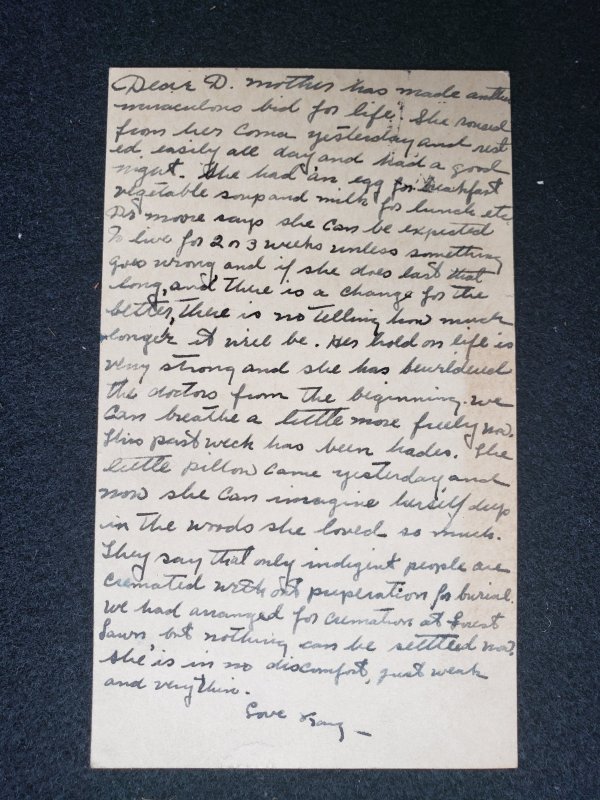 Dear D. mother has made another
miraculous bid for life. She roused
from her Coma yesterday and rest
ed easily all day and had a good
night. She had an egg for breakfast
vegetable soup and milk for lunch etc.
Dr moore says she can be expected
to live for 2 or 3 weeks unless something
goes wrong and if she does last that
long, and there is a change for the
better, there is no telling how much
longer it will be. Her hold on life is
very strong and she has bewildered
the doctors from the beginning. we
can breathe a little more freely now.
This past week has been hades. The
little pillow came yesterday, and
now she can imagine herself deep
in the woods she loved so much.
They say that only indigint people are
cremated without preperation for burial.
We had arranged for cremation at Forest
Lawn but nothing can be settled now.
She is in no discomfort, just weak
and very thin.
Love